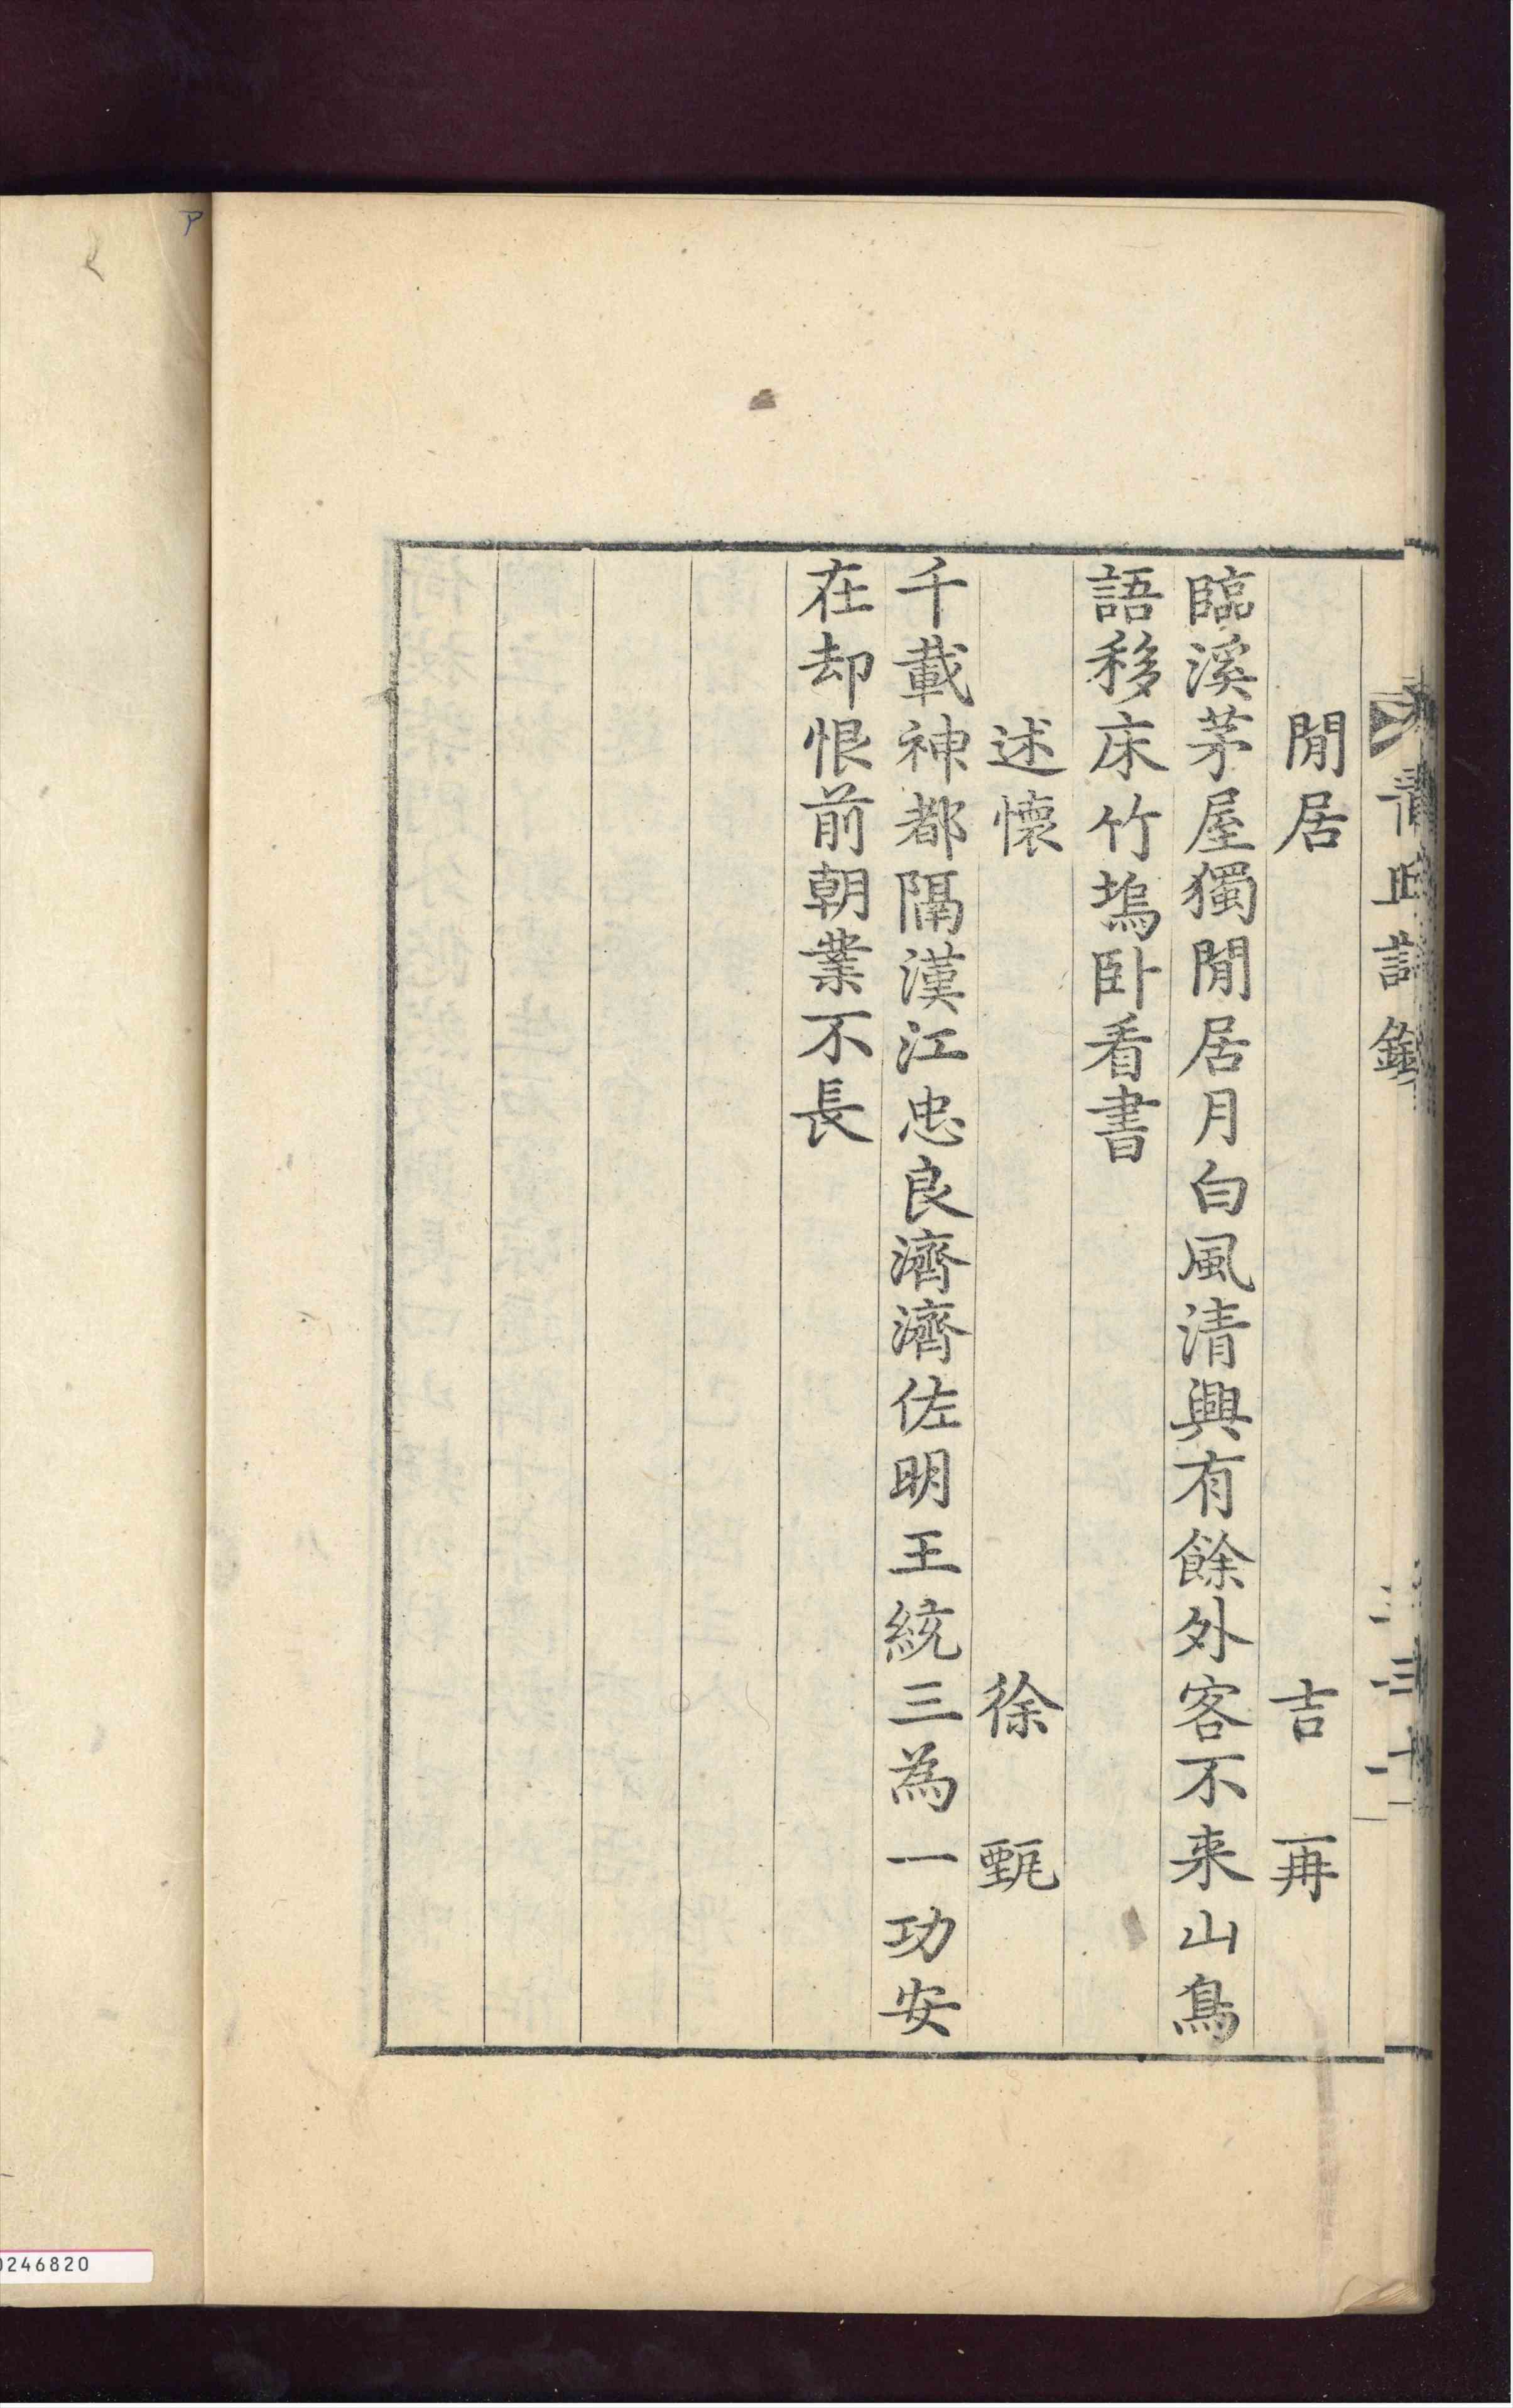 閒居 吉再
臨溪茅屋獨閒居月白風清興有餘外客不来山鳥
語移床竹塢卧看書
述懷 徐甄
千載神都隔漢江忠良濟濟佐明王統三為一功安
在却恨前朝業不長
0246820